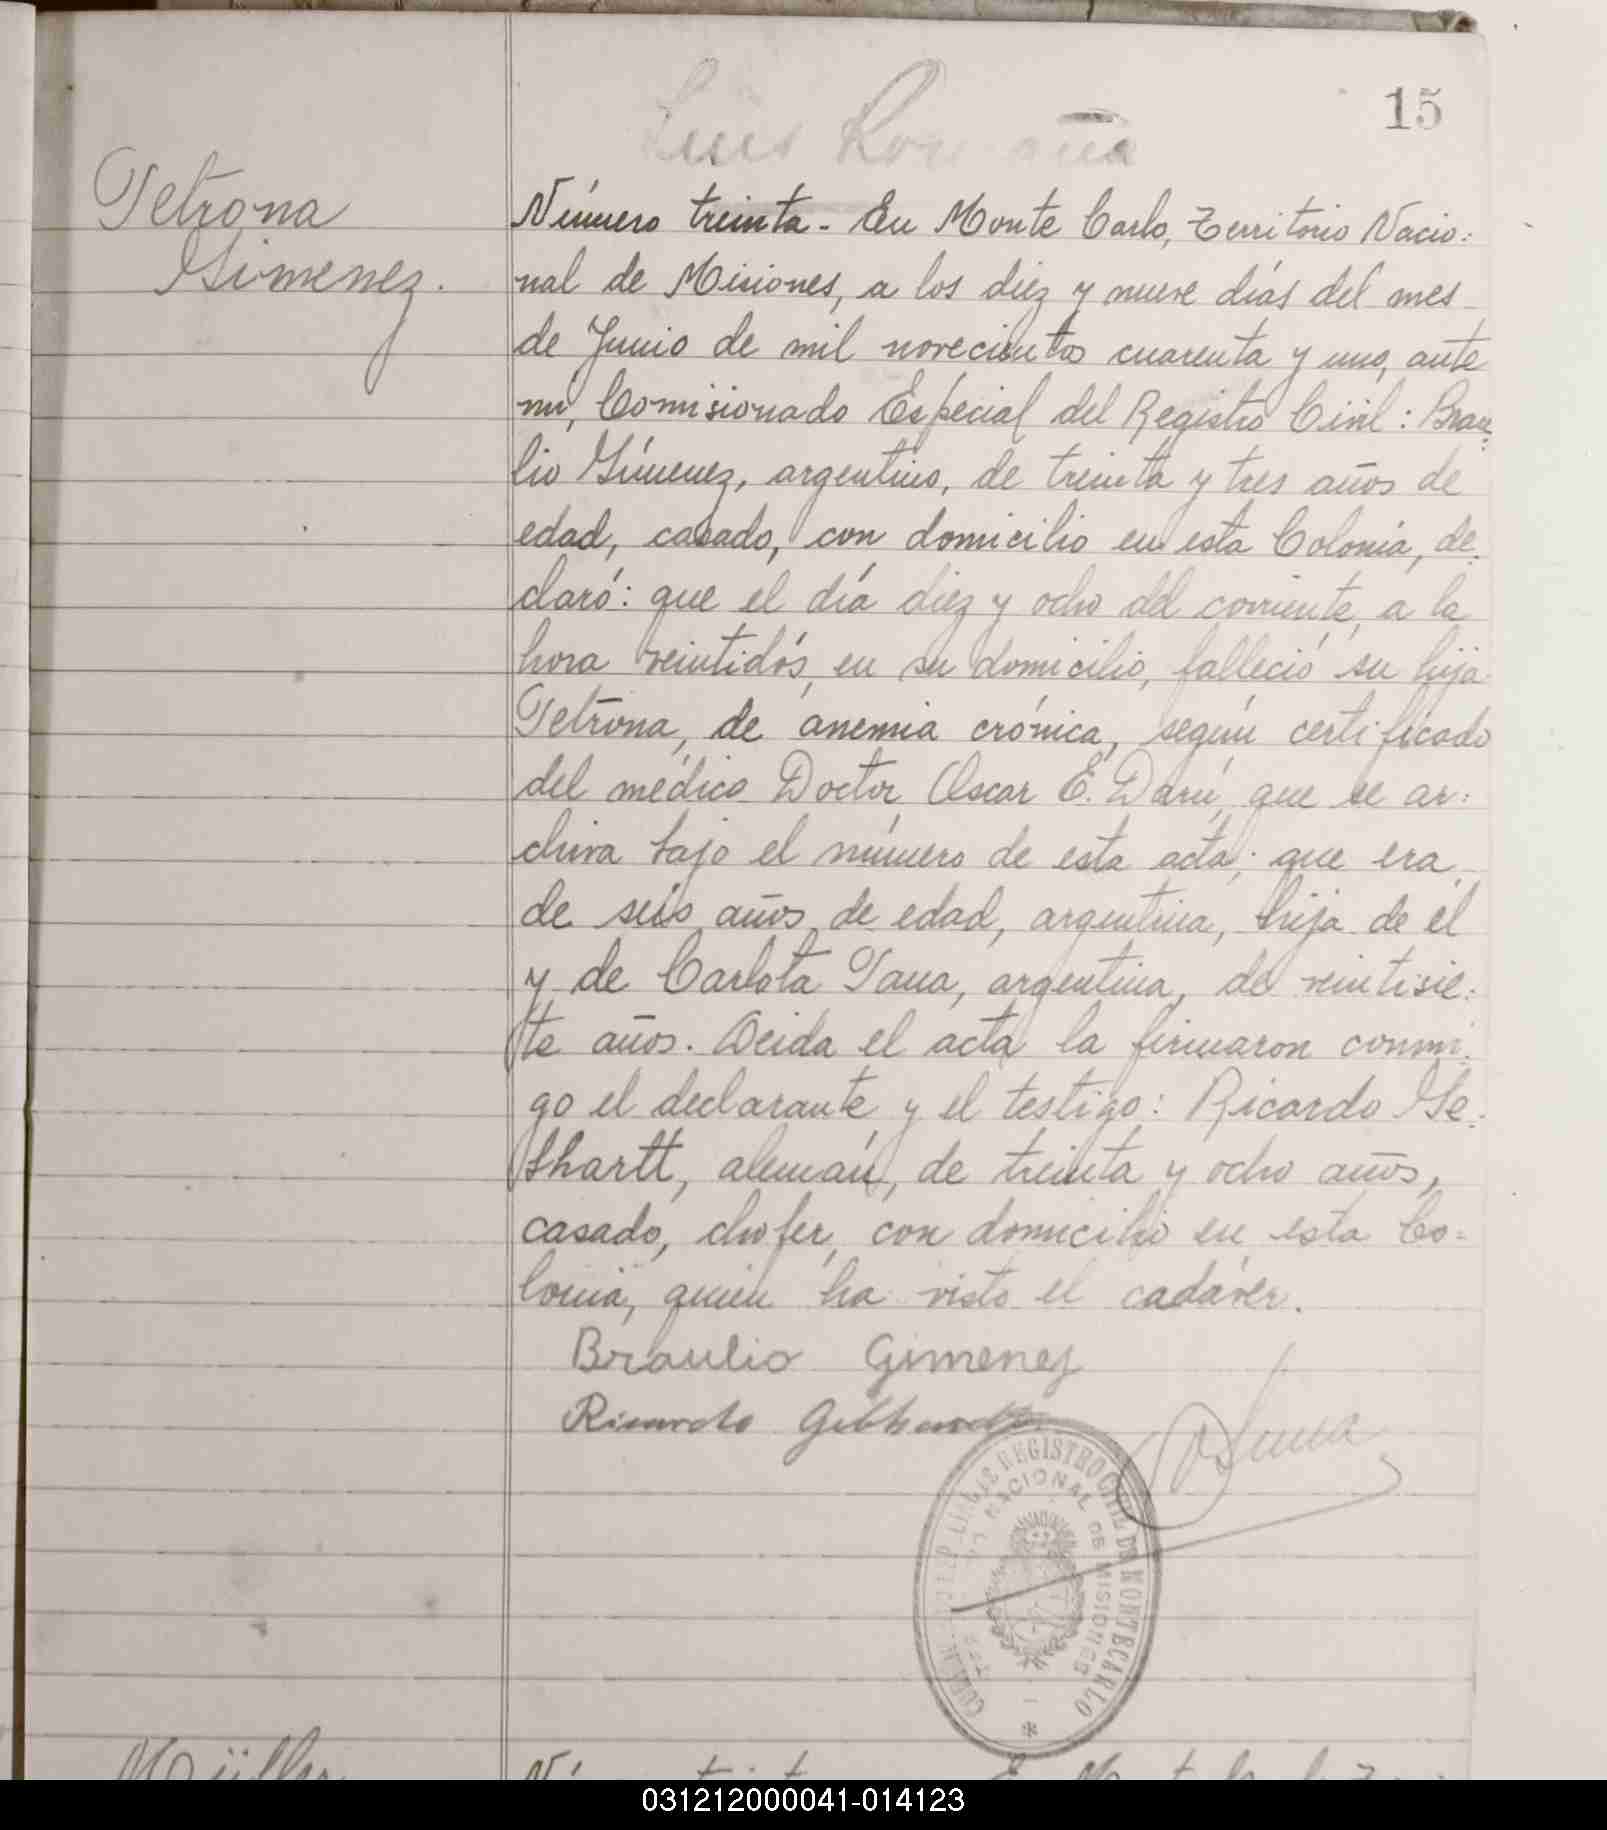 15
Luis
Petrona
Gimenez.
Número treinta - En Monte Carlo, Territorio Nacio=
nal de Misiones, a los diez y nueve días del mes
de Junio de mil novecientos cuarenta y uno, ante
mí, Comisionado Especial del Registro Civil: Brau=
lio Gímenez, argentino, de treinta y tres años de
edad, casado, con domicilio en esta Colonia, de=
claró: que el día diez y ocho del corriente, a la
hora veintidós, en su domicilio, falleció su hija
Petrona, de anemia crónica, según certificado
del médico Doctor Oscar E. Darú, que se ar=
chiva bajo el número de esta acta; que era
de seis años de edad, argentina, hija de él
y de Carlota Paua, argentina, de veintisie=
te años. Leida el acta la firmaron conmi=
go el declarante y el testigo: Ricardo Ge=
bhartt, alemán, de treinta y ocho años,
casado, chofer, con domicilio en esta Co=
lonia, quien ha visto el cadáver.
Braulio Gimenez
Ricardo
REGISTRO CIVIL DE MONTECARLO
NACIONAL DE MISIONES
Müller
031212000041-014123